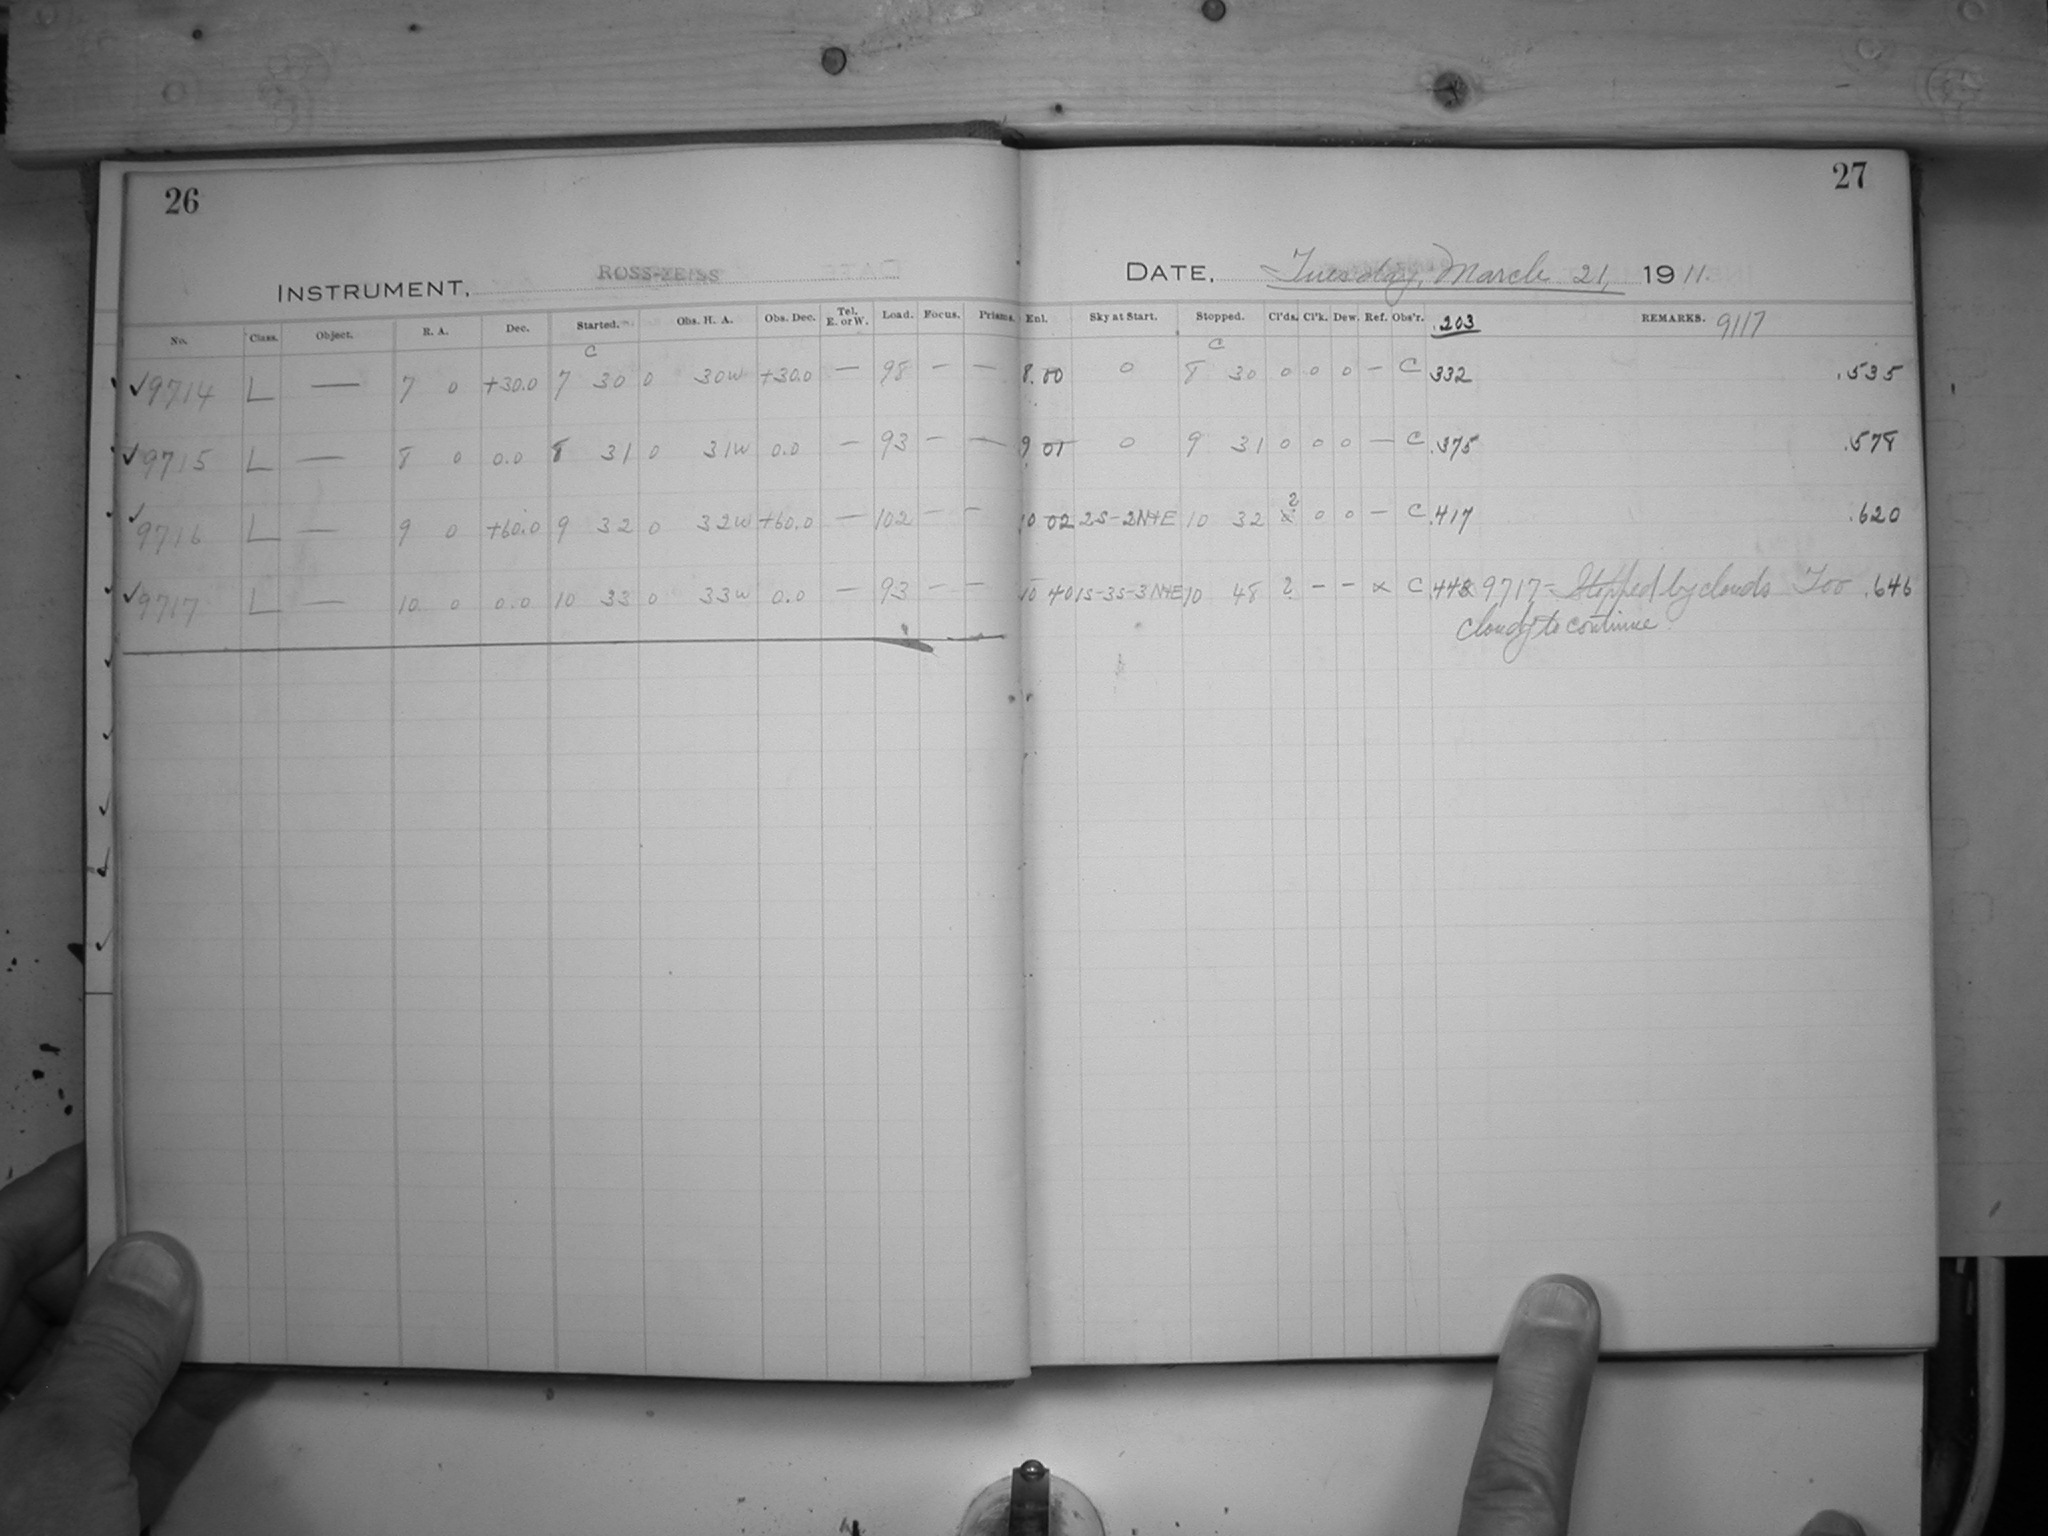 26
27
INSTRUMENT, ROSS-ZEISS
DATE, Tuesday, March 21, 1911.
No. Class. Object. R. A. Dec. Started. Obs. H. A. Obs. Dec. Tel. E. or W. Load. Focus. Prisms. Enl. Sky at Start. Stopped. Cl'ds. Cl'k. Dew. Ref. Obs'r. .203 REMARKS. 9117
C C
✓9714 L — 7 0 +30.0 7 30 0 30w +30.0 — 98 — — 8.00 0 8 30 0 0 0 — C .332 .535
✓9715 L — 8 0 0.0 8 31 0 31w 0.0 — 93 — — 9 01 0 9 31 0 0 0 — C .375 .578
✓9716 L — 9 0 +60.0 9 32 0 32w +60.0 — 102 — — 10 02 2S-2N+E 10 32 2 0 0 — C .417 .620
✓9717 L — 10 0 0.0 10 33 0 33w 0.0 — 93 — — 10 40 1S-3S-3N+E 10 48 2 — — x C 9717 - Stopped by clouds Too .646
cloudy to continue.